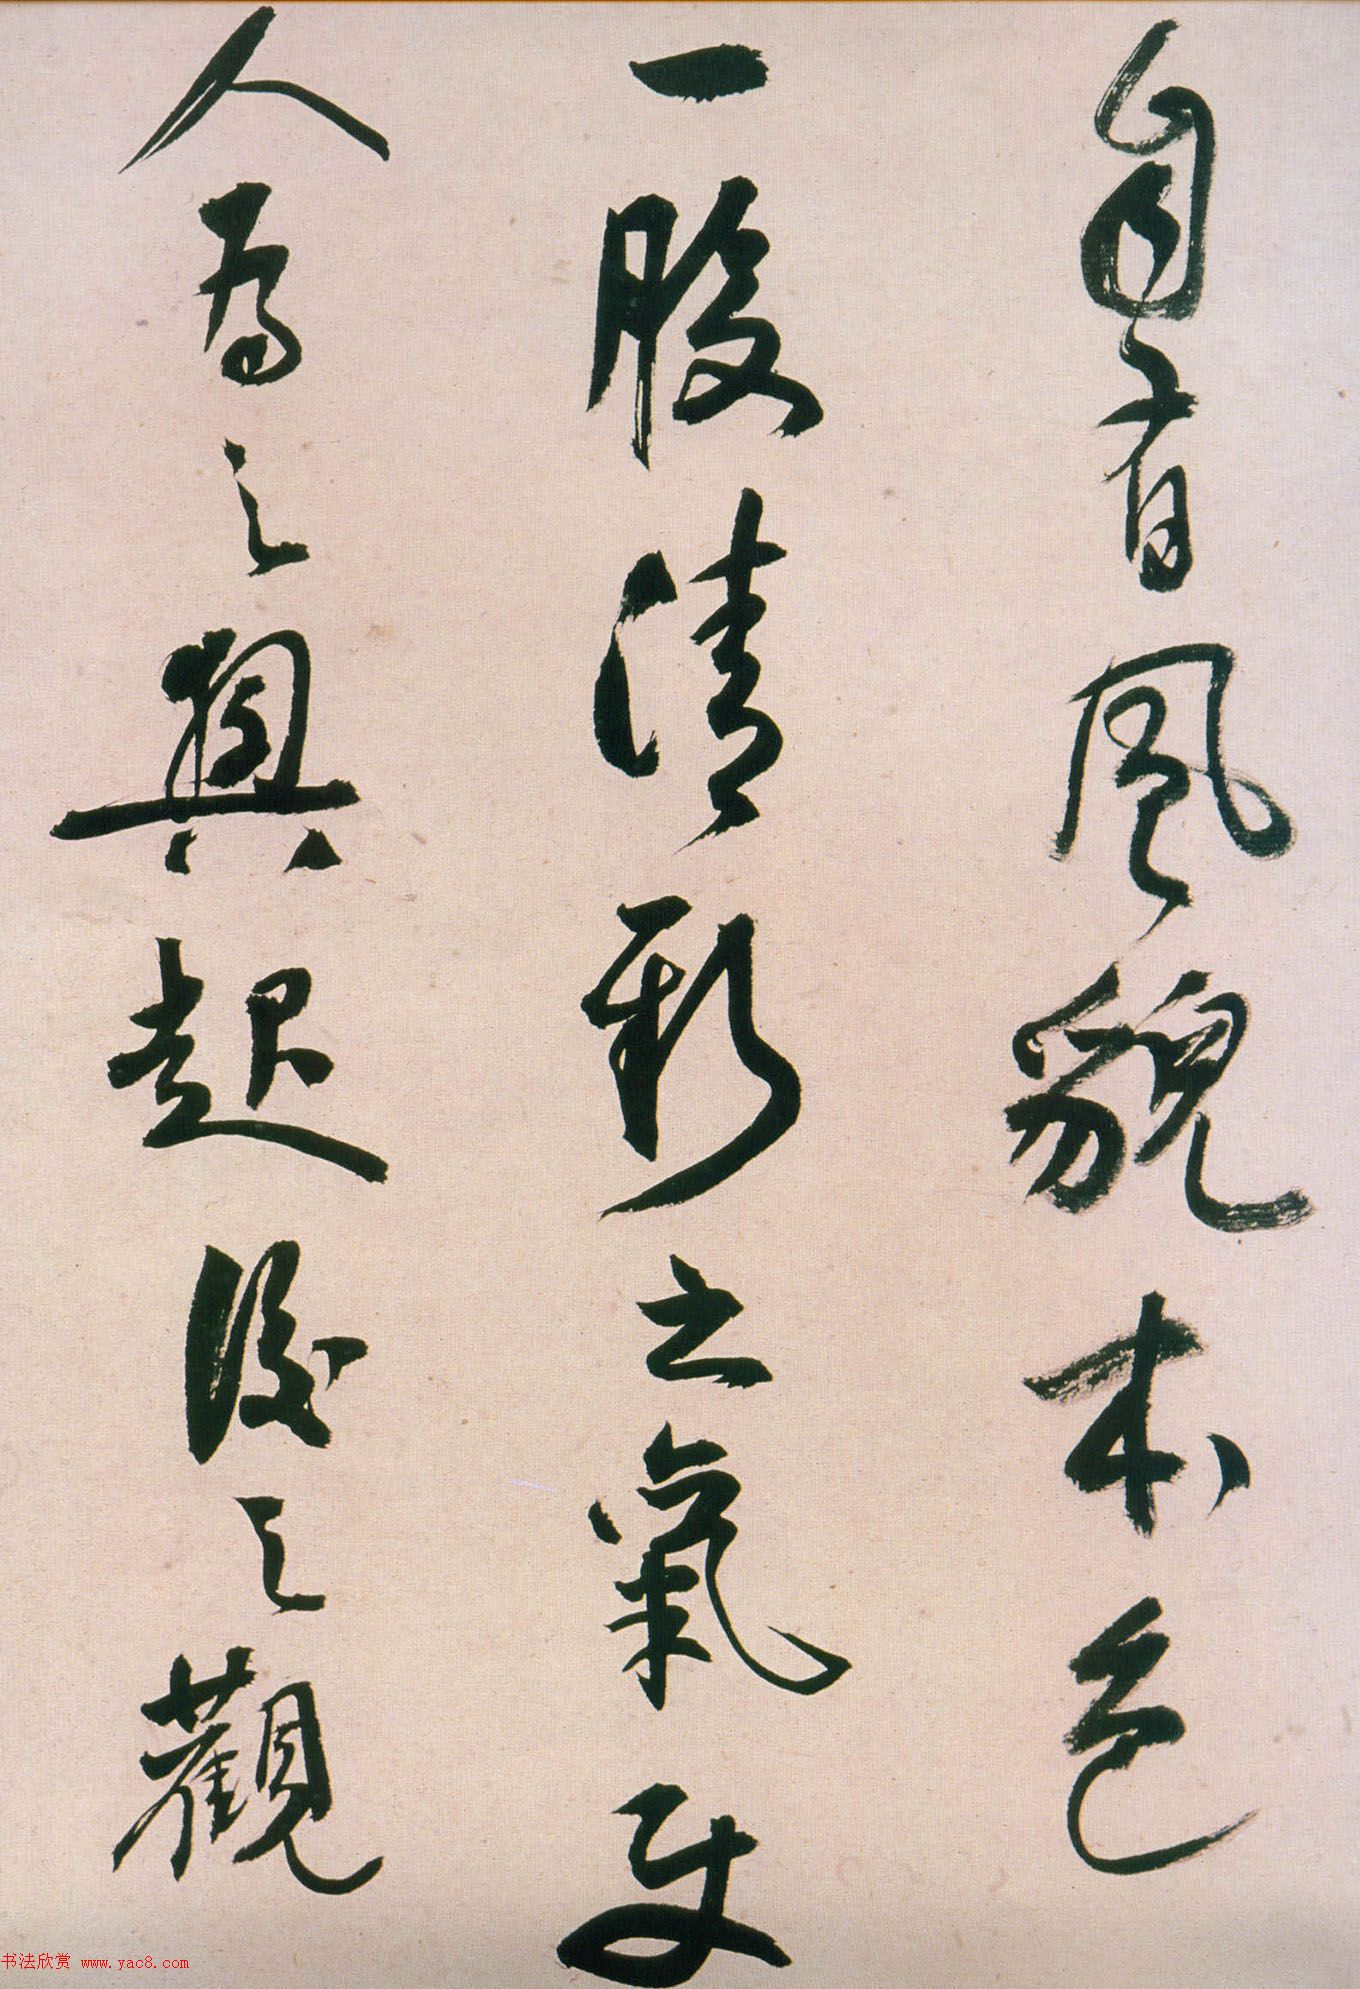 自有風貌本色
一股清新之氣使
人為之興起後之
觀
书法欣赏 www.yac8.com